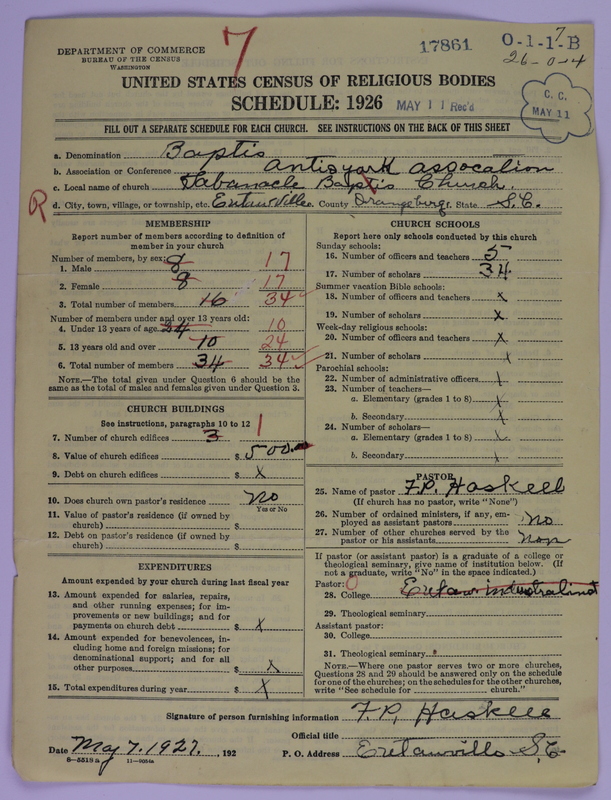 7
17861
0-1-1-7-B
26-0-4
DEPARTMENT OF COMMERCE
BUREAU OF THE CENSUS
WASHINGTON
UNITED STATES CENSUS OF RELIGIOUS BODIES
SCHEDULE: 1926
MAY 11 Rec'd
C. C.
MAY 11
FILL OUT A SEPARATE SCHEDULE FOR EACH CHURCH. SEE INSTRUCTIONS ON THE BACK OF THIS SHEET
a. Denomination Baptis
b. Association or Conference antisyark assocation
c. Local name of church Tabanacle Baptis Church.
R
d. City, town, village, or township, etc. Eutawville. County Orangeburg. State S.C.
MEMBERSHIP
Report number of members according to definition of
member in your church
Number of members, by sex:
1. Male 8 17
2. Female 8 17
3. Total number of members 16 34
Number of members under and over 13 years old:
4. Under 13 years of age 24 10
5. 13 years old and over 10 24
6. Total number of members 34 34
NOTE.—The total given under Question 6 should be
same as the total of males and females given under Question 3.
CHURCH BUILDINGS
See instructions, paragraphs 10 to 12
7. Number of church edifices 3 1
8. Value of church edifices $ 500.
9. Debt on church edifices $ X
10. Does church own pastor's residence No
Yes or No
11. Value of pastor's residence (if owned by
church) $
12. Debt on pastor's residence (if owned by
church) $
EXPENDITURES
Amount expended by your church during last fiscal year
13. Amount expended for salaries, repairs,
and other running expenses; for im-
provements or new buildings; and for
payments on church debt $ X
14. Amount expended for benevolences, in-
cluding home and foreign missions; for
denominational support; and for all
other purposes $ X
15. Total expenditures during year $ X
CHURCH SCHOOLS
Report here only schools conducted by this church
Sunday schools:
16. Number of officers and teachers 5
17. Number of scholars 34
Summer vacation Bible schools:
18. Number of officers and teachers X
19. Number of scholars X
Week-day religious schools:
20. Number of officers and teachers X
21. Number of scholars X
Parochial schools:
22. Number of administrative officers X
23. Number of teachers—
a. Elementary (grades 1 to 8) X
b. Secondary X
24. Number of scholars—
a. Elementary (grades 1 to 8) X
b. Secondary X
PASTOR
25. Name of pastor F.P. Haskell
(If church has no pastor, write "None")
26. Number of ordained ministers, if any, em-
ployed as assistant pastors No
27. Number of other churches served by the
pastor or his assistants non
If pastor (or assistant pastor) is a graduate of a college or
theological seminary, give name of institution below. (If
not a graduate, write "No" in the space indicated.)
Pastor: 0
28. College Eutaw
29. Theological seminary
Assistant pastor:
30. College
31. Theological seminary
NOTE.—Where one pastor serves two or more churches,
Questions 28 and 29 should be answered only on the schedule
for one of the churches; on the schedules for the other churches,
write "See schedule for church."
Signature of person furnishing information F.P. Haskell
Official title
Date May 7. 1927., 192 P. O. Address Eutawville S.C.
8—5518a 11—9054a